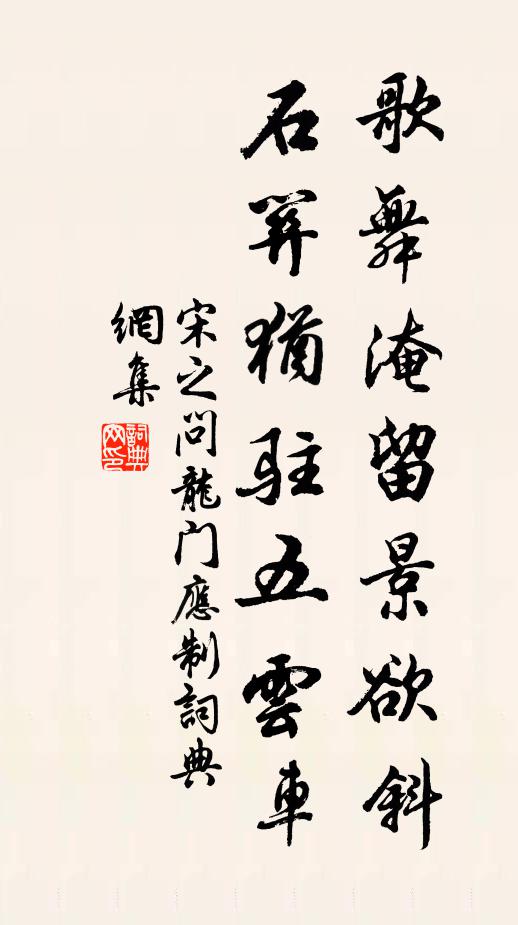 歌舞淹留景欲斜
石关猶駐五雲車
宋之问龍门應制詞典
網集
詞典
网印